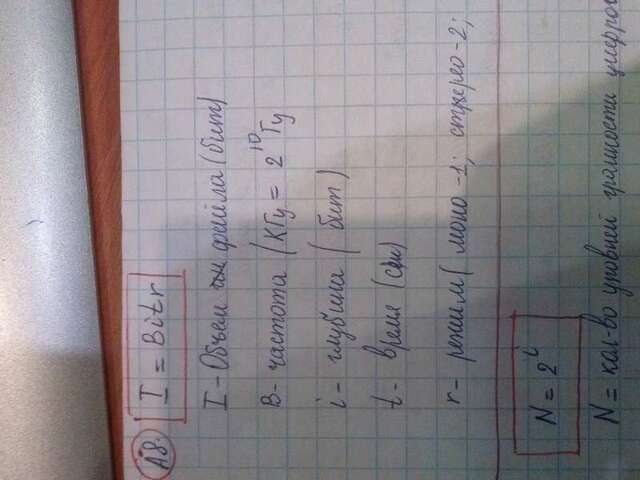 А8. I = Bitr
I - Объем файла (бит)
B - частота (КГц = 2¹⁰ Гц
i - глубина (бит)
t - время (сек)
r - режим (моно -1; стерео -2;
N = 2ⁱ
N = кол-во уровней громкости цифров